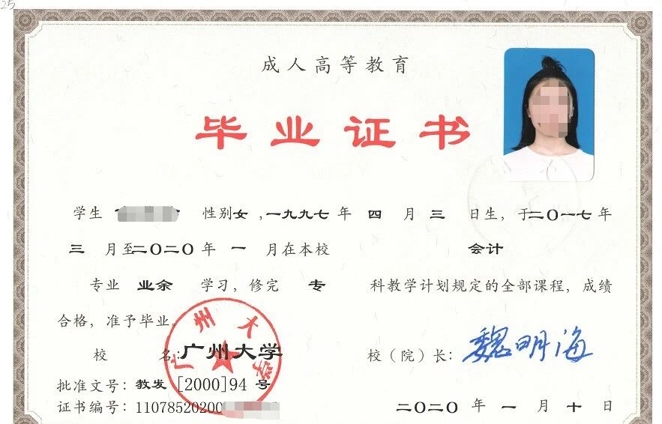 25
成人高等教育
毕业证书
学生 性别女,一九九七年 四 月 三 日生,于二〇一七年
三 月至二〇二〇年 一 月在本校 会计
专业 业余 学习,修完 专 科教学计划规定的全部课程,成绩
合格,准予毕业。
校 名:广州大学 校(院)长:魏明海
广州大学
批准文号:教发 [2000]94 号
证书编号:11078520200
二〇二〇 年 一 月 十 日